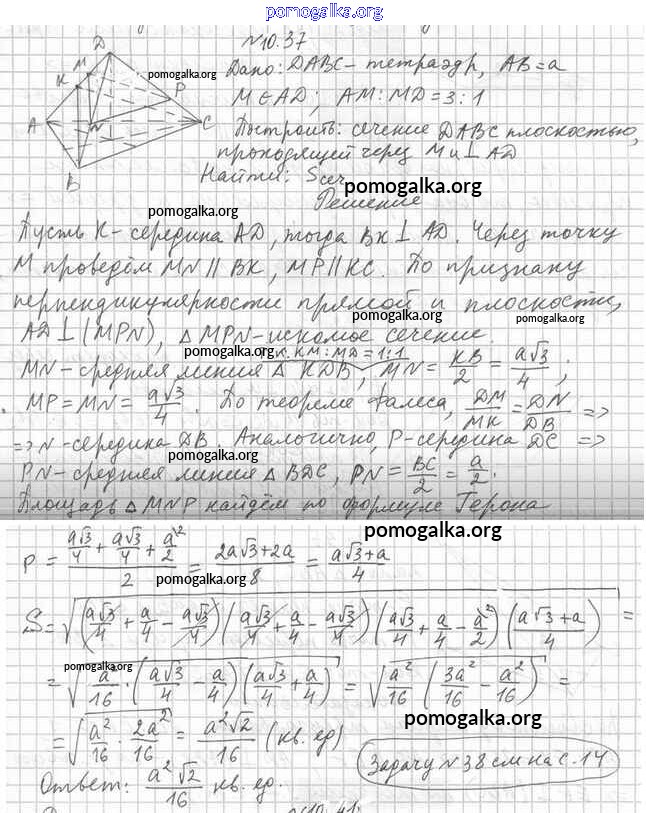 pomogalka.org
№10.37
Дано: DABC - тетраэдр, AB = a
M ∈ AD; AM:MD = 3:1
Построить: сечение DABC плоскостью,
проходящей через M и ⊥ AD
Найти: Sсеч
Решение
D
M
K
P
A
N
C
B
pomogalka.org
pomogalka.org
pomogalka.org
Пусть K - середина AD, тогда BK ⊥ AD. Через точку
M проведём MN || BK, MP || KC. По признаку
перпендикулярности прямой и плоскости,
pomogalka.org
pomogalka.org
AD ⊥ (MPN), △ MPN - искомое сечение.
pomogalka.org
т.к. KM:MD = 1:1
MN - средняя линия △ KDB, MN = KB/2 = a√3/4;
MP = MN = a√3/4. По теореме Фалеса, DM/MK = DN/DB =>
=> N - середина DB. Аналогично, P - середина DC =>
pomogalka.org
PN - средняя линия △ BDC, PN = BC/2 = a/2.
Площадь △ MNP найдём по формуле Герона
pomogalka.org
p = (a√3/4 + a√3/4 + a/2)/2 = (2a√3+2a)/8 = (a√3+a)/4
pomogalka.org
S = √((a√3/4 + a/4 - a√3/4)(a√3/4 + a/4 - a√3/4)(a√3/4 + a/4 - a/2)((a√3+a)/4)) =
pomogalka.org
= √(a²/16 · (a√3/4 - a/4)(a√3/4 + a/4)) = √(a²/16 (3a²/16 - a²/16)) =
pomogalka.org
= √(a²/16 · 2a²/16) = a²√2/16 (кв. ед)
Задачу №38 см на с. 14
Ответ: a²√2/16 кв. ед.
№10.41.